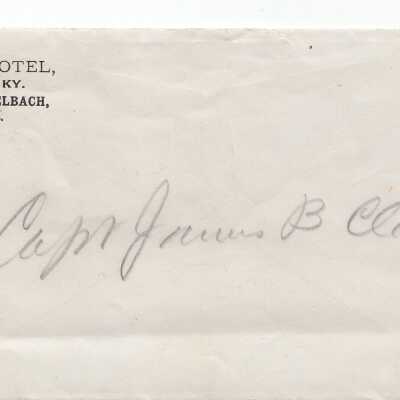 OTEL,
KY.
ELBACH,
Capt James B Cl